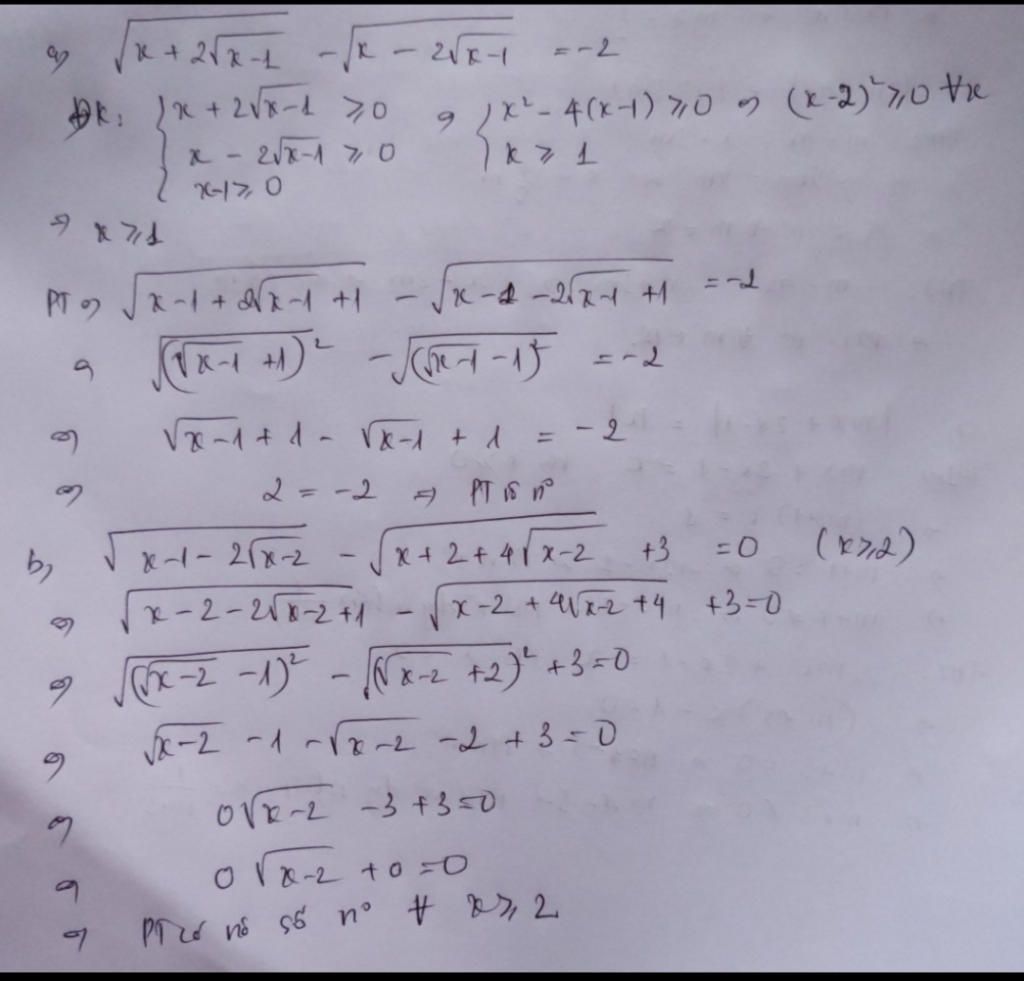 a) √(x + 2√(x-1)) - √(x - 2√(x-1)) = -2
ĐK: { x + 2√(x-1) ≥ 0 ⇔ { x² - 4(x-1) ≥ 0 ⇔ (x-2)² ≥ 0 ∀x
x - 2√(x-1) ≥ 0 x ≥ 1
x-1 ≥ 0
⇒ x ≥ 1
PT ⇔ √(x-1 + 2√(x-1) + 1) - √(x-1 - 2√(x-1) + 1) = -2
⇔ √((√(x-1) + 1)²) - √((√(x-1) - 1)²) = -2
⇔ √(x-1) + 1 - √(x-1) + 1 = -2
⇔ 2 = -2 ⇒ PT n°
b) √(x-1 - 2√(x-2)) - √(x + 2 + 4√(x-2)) + 3 = 0 (x ≥ 2)
⇔ √(x-2 - 2√(x-2) + 1) - √(x-2 + 4√(x-2) + 4) + 3 = 0
⇔ √((√(x-2) - 1)²) - √((√(x-2) + 2)²) + 3 = 0
⇔ √(x-2) - 1 - √(x-2) - 2 + 3 = 0
⇔ 0√(x-2) - 3 + 3 = 0
⇔ 0√(x-2) + 0 = 0
⇔ PT có số n° ∀ x ≥ 2